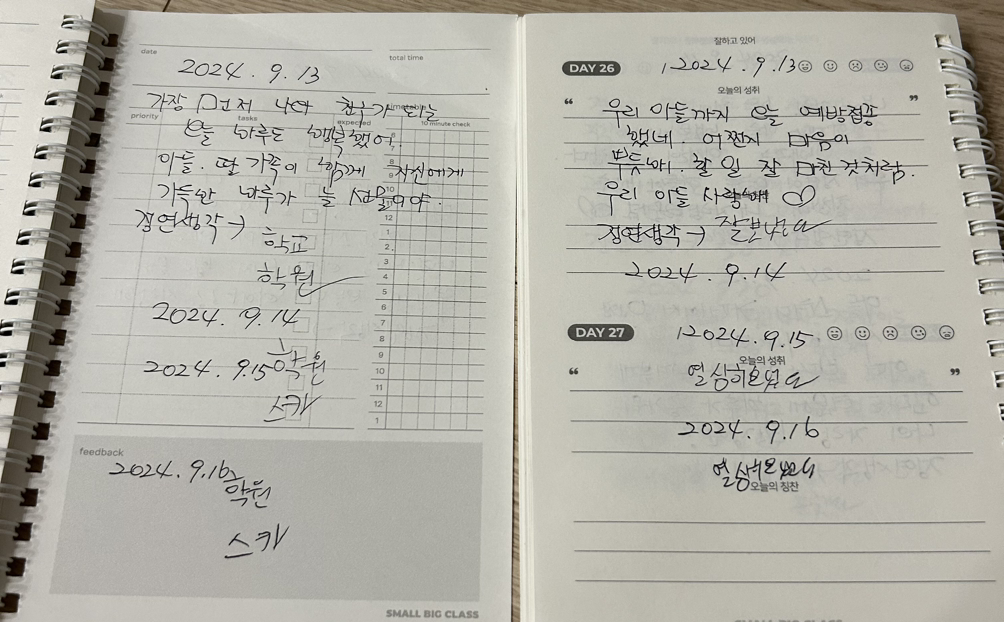 date
total time
2024. 9. 13
가장 먼저 나의 친구가 되는
timetable
priority
tasks
expected
10 minute check
오늘 하루도 행복했어.
아들. 딸 가족이 함께 자신에게
가득한 하루가 늘 선물이야.
정연생각→
학교
학원
2024. 9. 14
학원
2024. 9.15
스카
6
7
8
9
10
11
12
1
2
3
4
5
6
7
8
9
10
11
12
1
feedback
2024. 9. 16
학원
스카
SMALL BIG CLASS
잘하고 있어
DAY 26
2024. 9. 13
오늘의 성취
“ ”
우리 아들까지 오늘 예방접종
했네. 어쩐지 마음이
뿌듯해. 할 일 잘 마친 것처럼.
우리 아들 사랑해
정연생각→ 잘보냈다
2024. 9. 14
DAY 27
2024. 9. 15
오늘의 성취
“ ”
열심히보냈다
2024. 9. 16
열심히보냈다
오늘의 칭찬